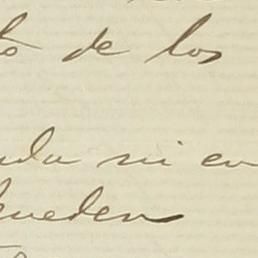 to de los
nda ni en
pueden